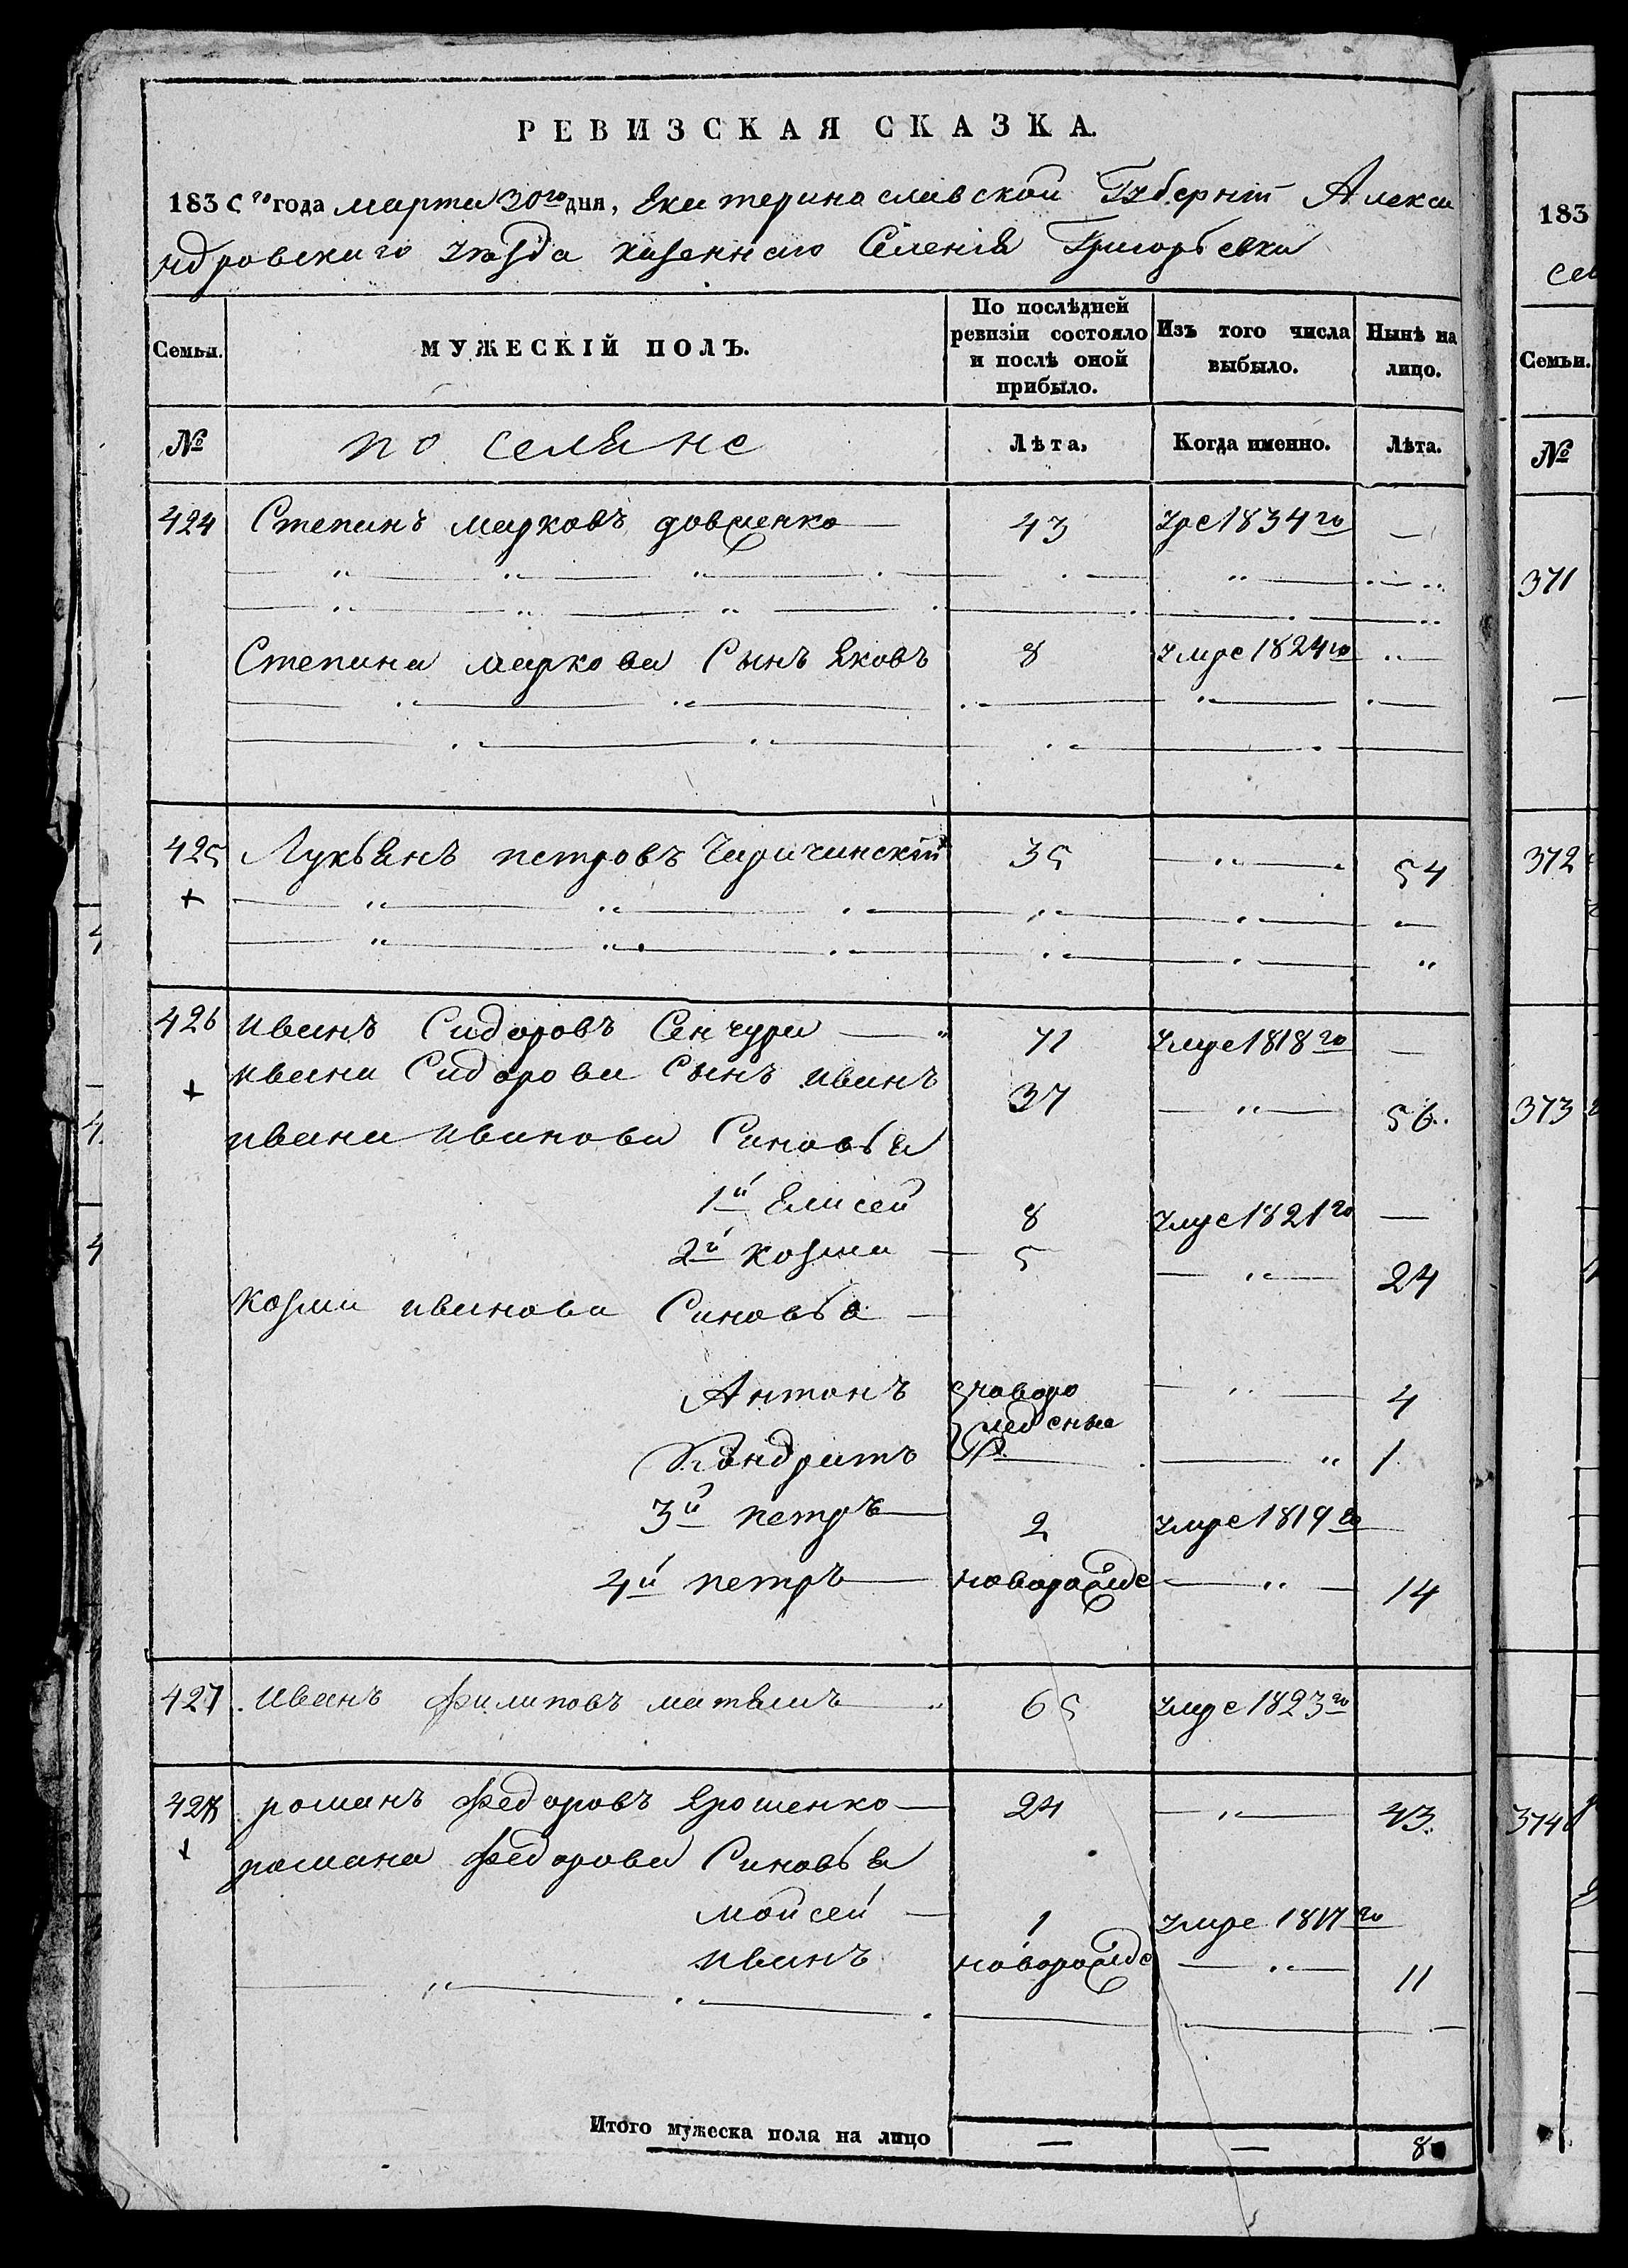 РЕВИЗСКАЯ СКАЗКА.
1835 го года марта 30го дня, Екатеринославской Губерніи Алекса
ндровскаго уѣзда казеннаго Селенія Григорьевки
Семьи. МУЖЕСКІЙ ПОЛЪ. По послѣдней ревизіи состояло и послѣ оной прибыло. Изъ того числа выбыло. Нынѣ на лицо.
№ поселяне Лѣта, Когда именно. Лѣта.
424 Степанъ марковъ довженко — 43 1834го —
Степана маркова Сынъ Яковъ 8 умре 1824го
425 Лукьянъ петровъ Чаричинскій 35 — „ — 54
+
426 иванъ Сидоровъ Сенчура — 71 умре 1818го —
+ ивана Сидорова Сынъ иванъ 37 — „ — 56
ивана иванова Синовья
1й Елисей 8 умре 1821го —
2й козма — 5 — „ — 24
козми иванова Синовья —
Антонъ новоро — „ — 4
жденые
Кондратъ — „ 1
3й петръ — 2 умре 1819го
4й петръ — новорожде — „ — 14
427 иванъ филиповъ матяшъ — 65 умре 1823го
428 романъ Федоровъ Ярошенко — 24 — „ — 43
+ романа Федорова Синовья
моисей — 1 умре 1817го
иванъ новорожде — „ — 11
Итого мужеска пола на лицо — — 8
183
Семьи.
№
371
372
373
374